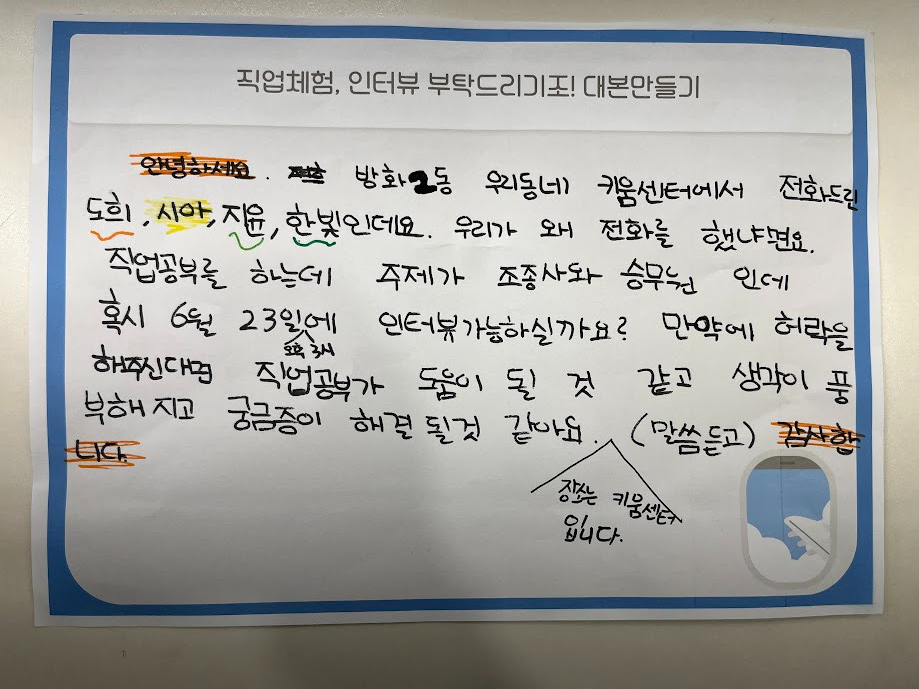 직업체험, 인터뷰 부탁드리기조! 대본만들기
안녕하세요. 방화2동 우리동네 키움센터에서 전화드린
도희, 시아, 지윤, 한빛인데요. 우리가 왜 전화를 했냐면요.
직업공부를 하는데 주제가 조종사와 승무원 인데
혹시 6월 23일에 인터뷰가능하실까요? 만약에 허락을
오후 3시
해주신다면 직업공부가 도움이 될 것 같고 생각이 풍
부해 지고 궁금증이 해결 될것 같아요. (말씀듣고) 감사합
니다.
장소는 키움센터
입니다.